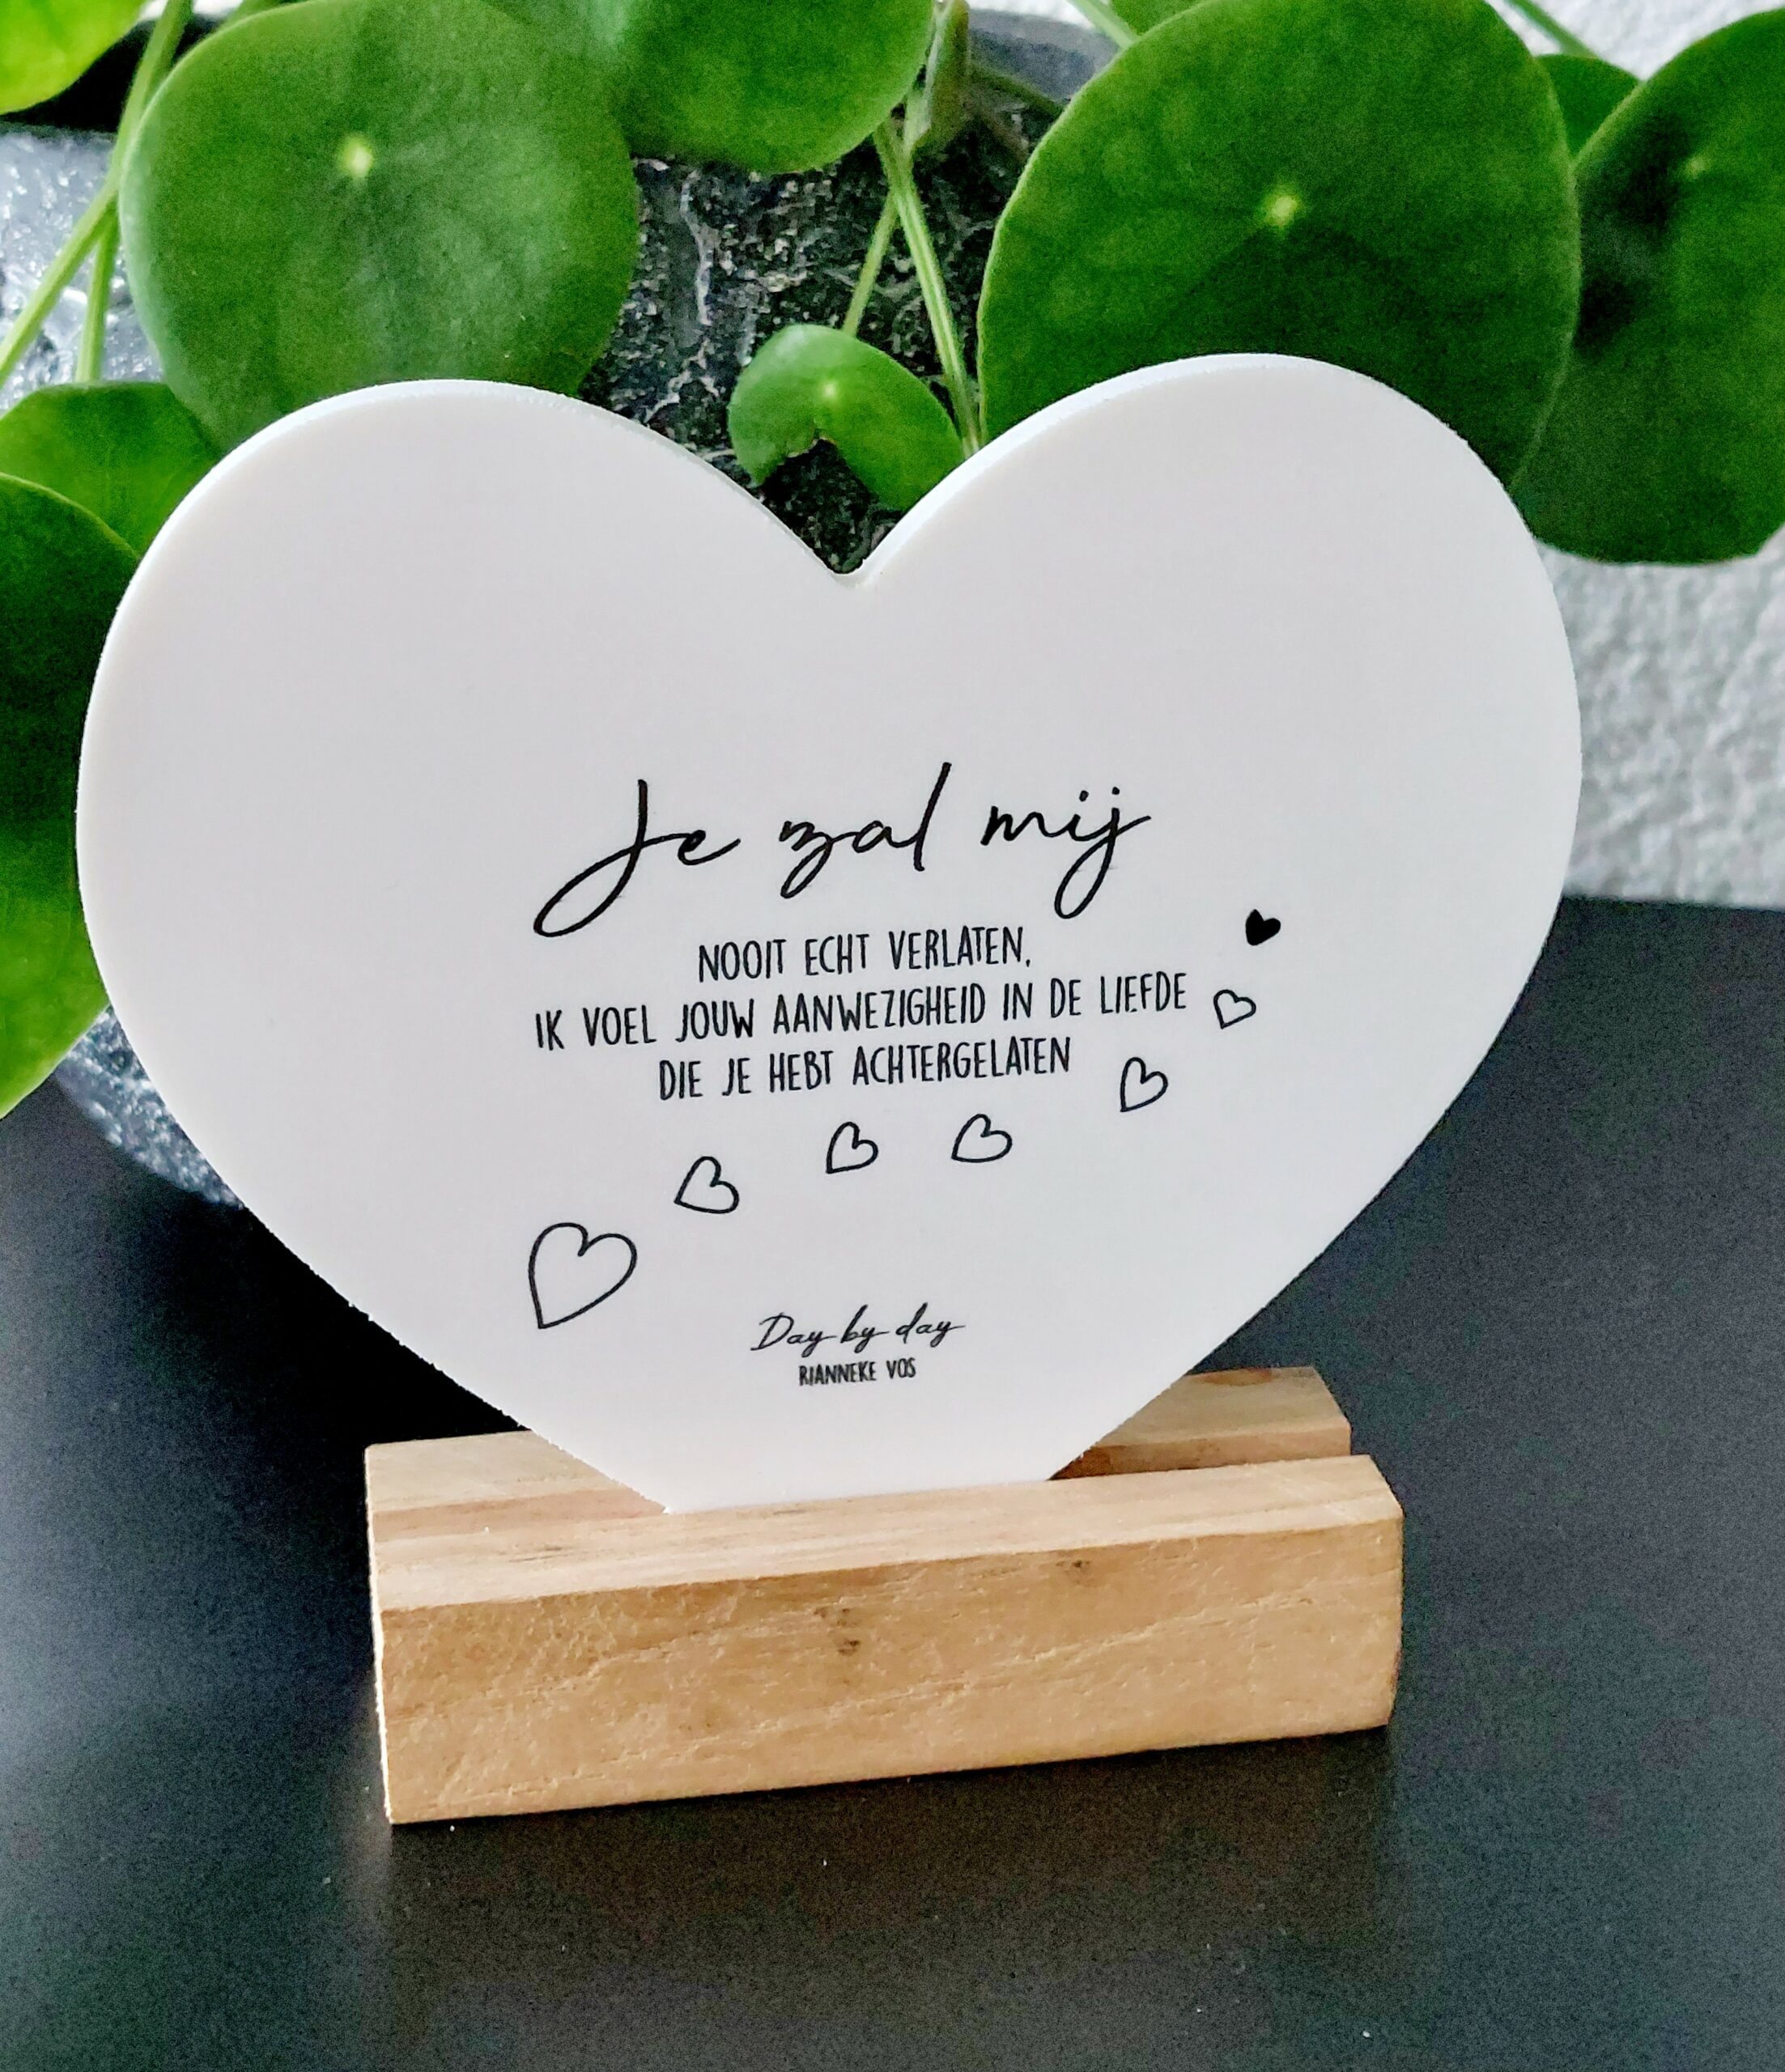 Je zal mij
NOOIT ECHT VERLATEN,
IK VOEL JOUW AANWEZIGHEID IN DE LIEFDE
DIE JE HEBT ACHTERGELATEN
Day by day
RIANNEKE VOS